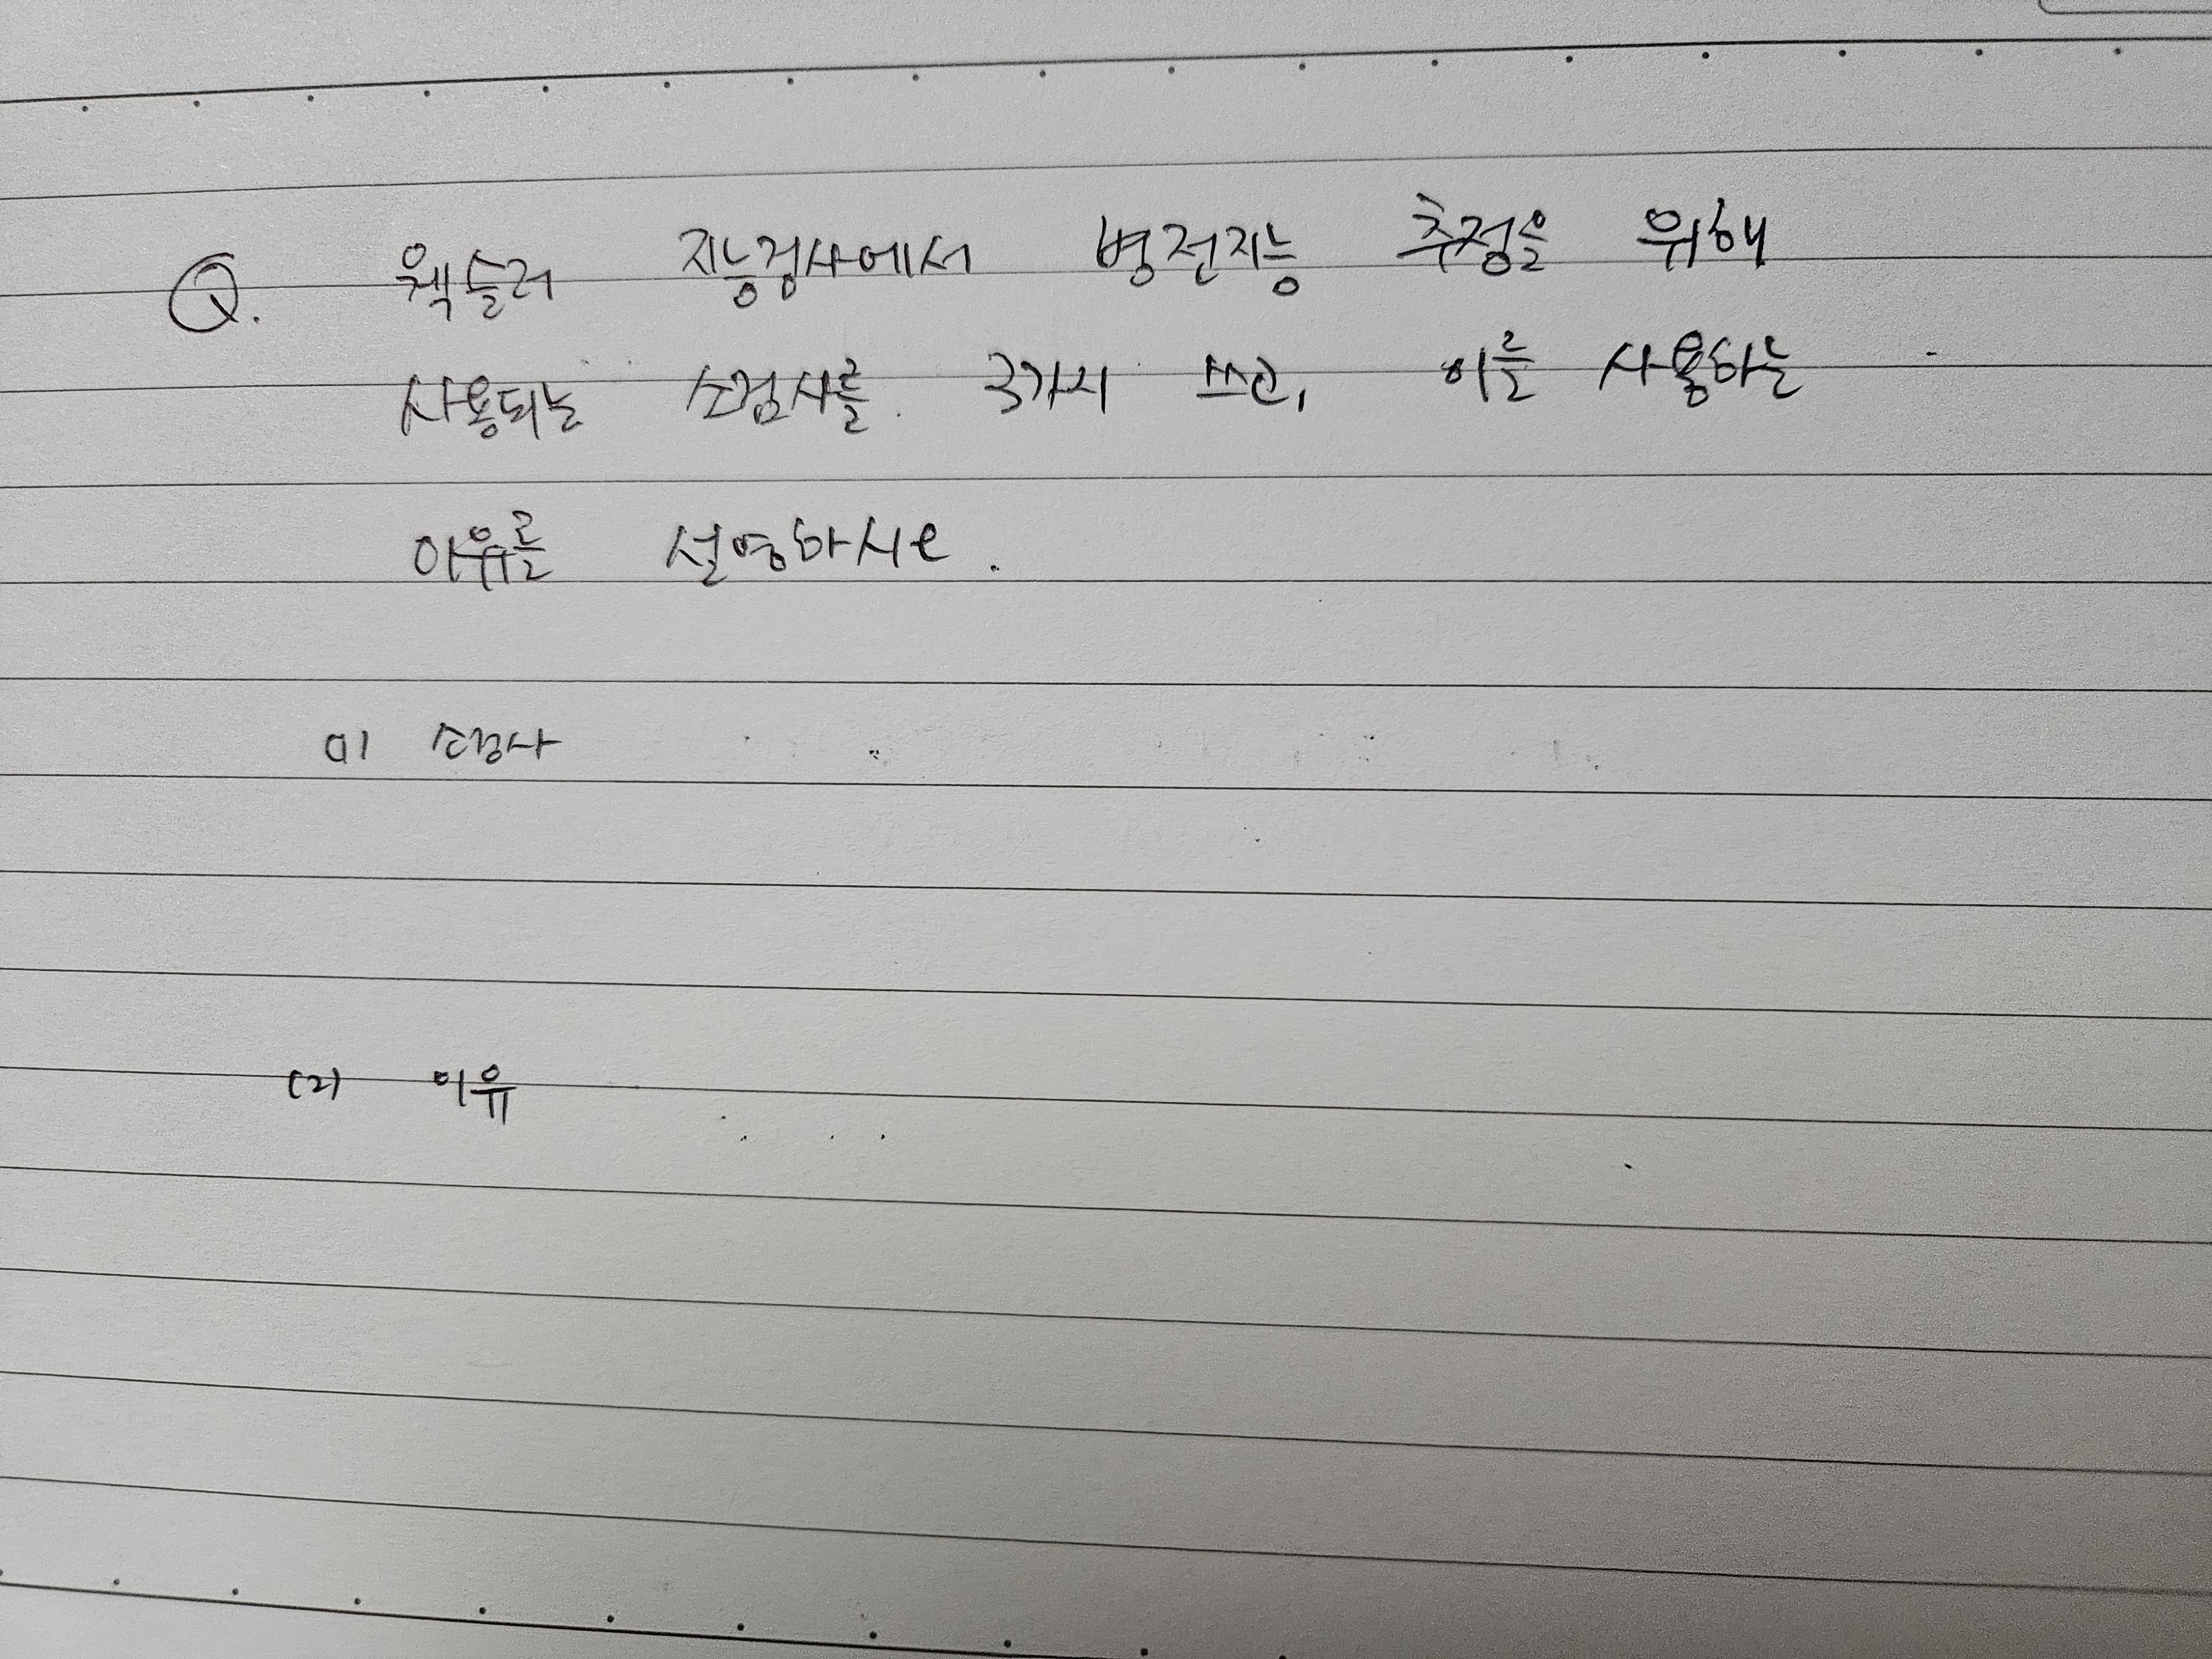 Q. 웩슬러 지능검사에서 병전지능 추정을 위해
사용되는 소검사를 3가지 쓰고, 이를 사용하는
이유를 설명하시오.
(1) 소검사
(2) 이유